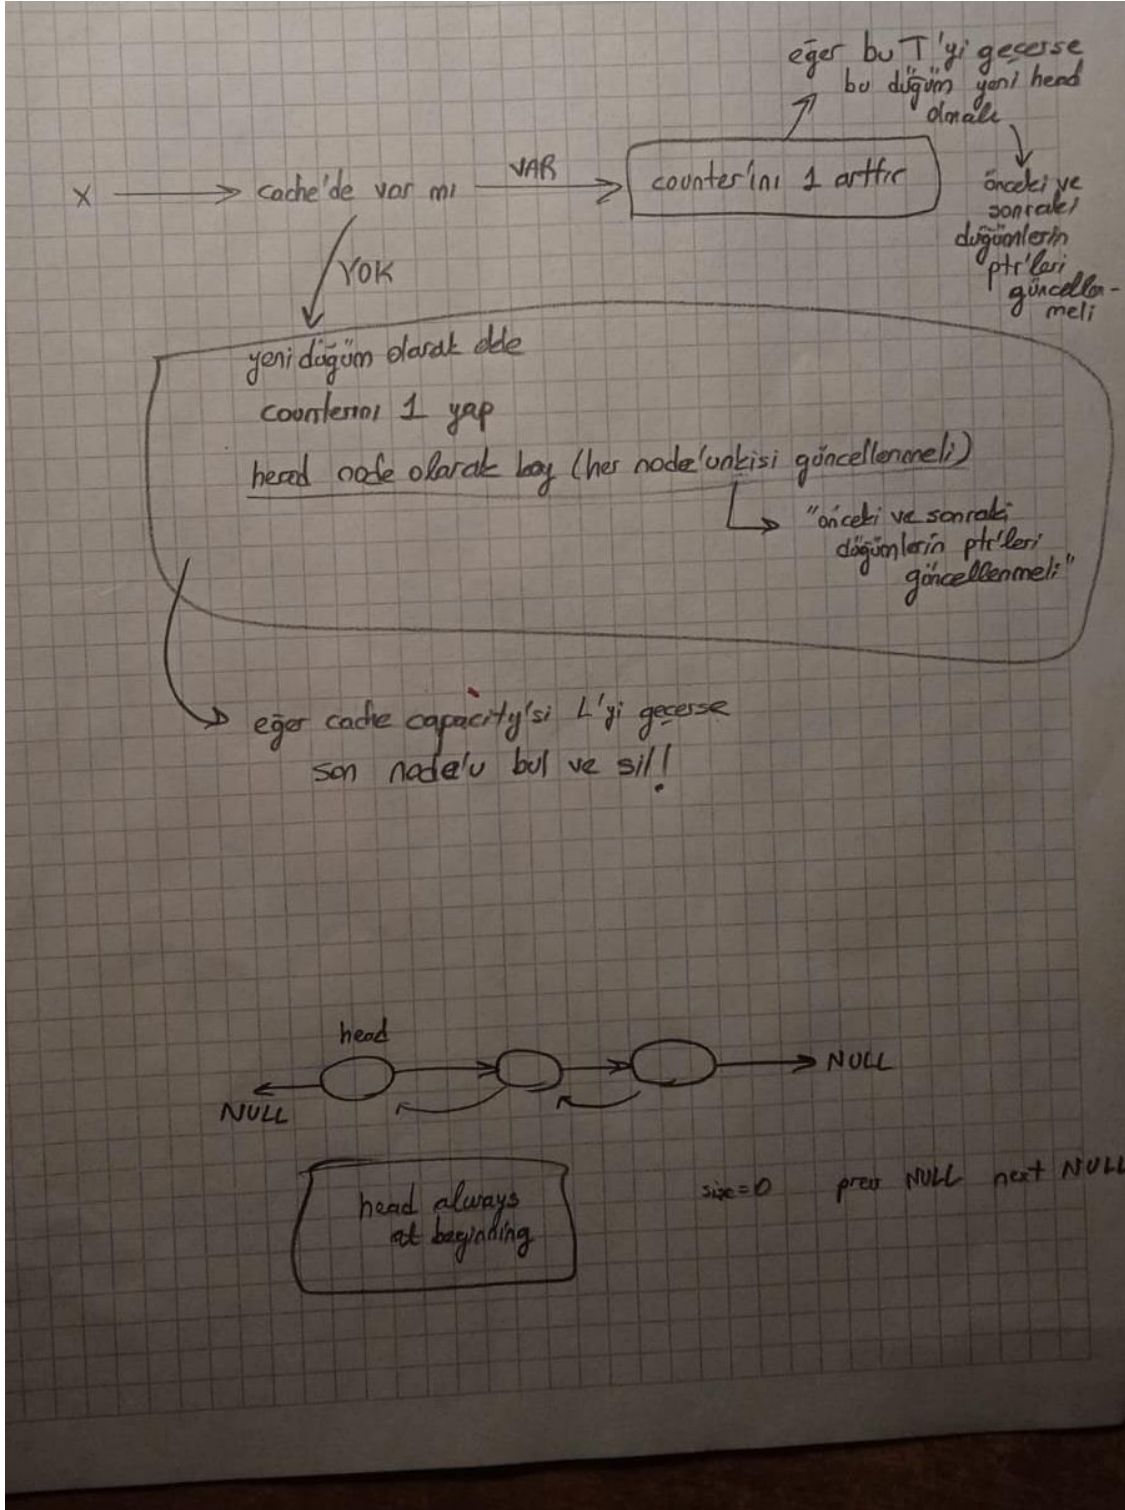 eğer bu T'yi geçerse
bu düğüm yeni head
olmalı
X cache'de var mı VAR counter'ını 1 arttır
önceki ve
sonraki
düğümlerin
ptr'leri
güncellen-
meli
YOK
yeni düğüm olarak ekle
counterını 1 yap
head node olarak koy (her node'unkisi güncellenmeli)
"önceki ve sonraki
düğümlerin ptr'leri
güncellenmeli"
eğer cache capacity'si L'yi geçerse
son node'u bul ve sil!
head
NULL
NULL
head always
at beginning
size=0 prev NULL next NULL